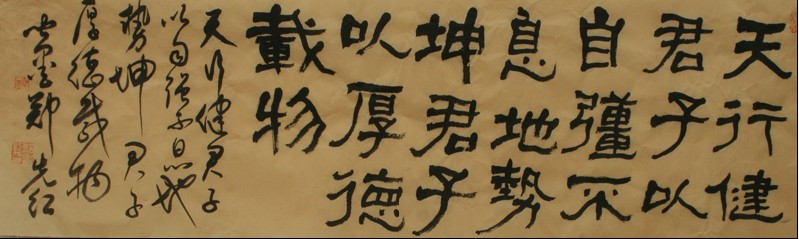 天行健
君子以
自彊不
息地勢
坤君子
以厚德
載物
天行健君子
以自强不息地
势坤君子
厚德载物